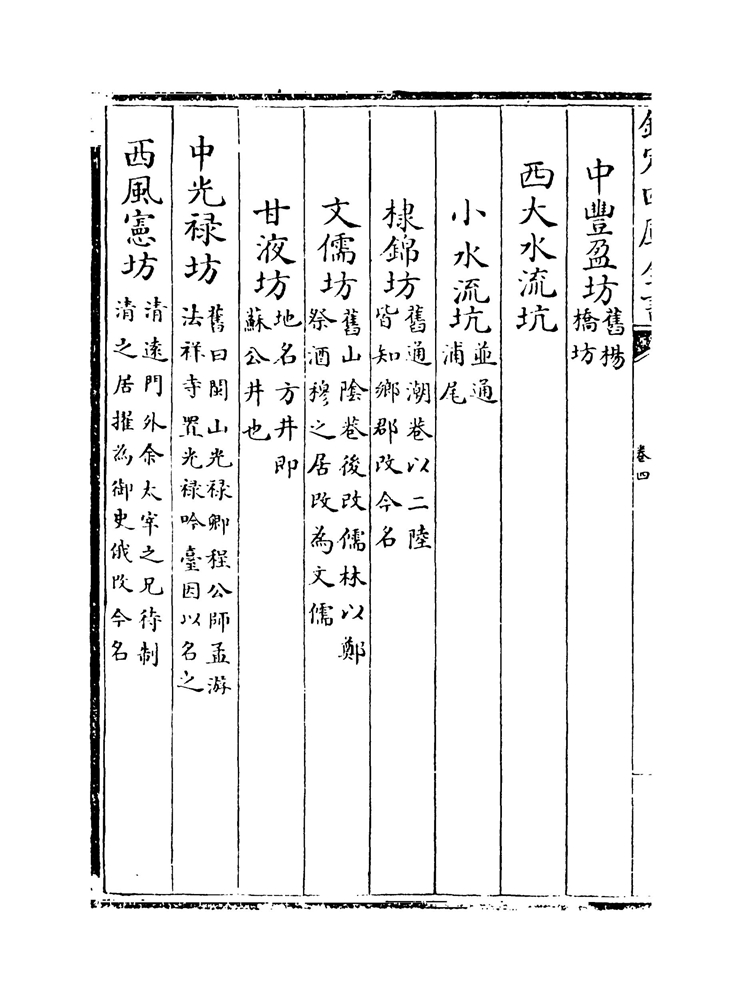 欽定四庫全書
卷四
中豐盈坊舊楊橋坊
西大水流坑
小水流坑並通浦尾
棣錦坊舊通潮巷以二陸皆知鄉郡改今名
文儒坊舊山陰巷後改儒林以鄭祭酒穆之居改為文儒
甘液坊地名方井即蘇公井也
中光禄坊舊曰閩山光禄卿程公師孟游法祥寺置光禄吟臺因以名之
西風憲坊清遠門外余太宰之兄待制清之居擢為御史俄改今名